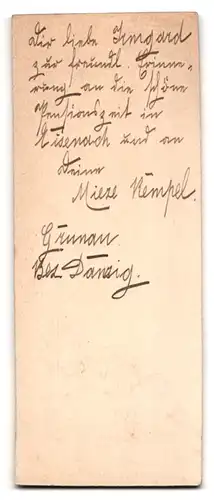 Dir liebe Irmgard
zur freundl. Erinne-
rung an die schöne
Pensionszeit in
Eisenach und an
Deine
Mieze Hempel.
Grunau.
Bez Danzig.